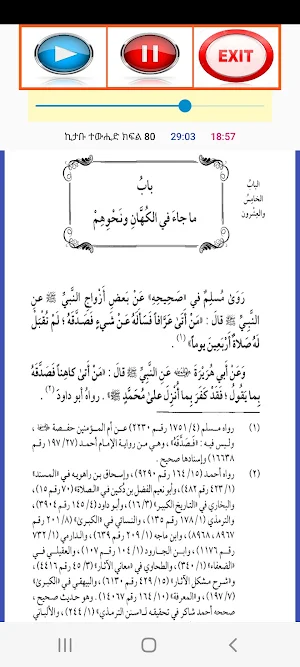 EXIT
ኪታቡ ተውሒድ ክፍል 80 29:03 18:57
الباب
الخامس
والعشرون
بابُ
ما جاءَ في الكُهَّانِ ونَحْوِهِمْ
رَوَىٰ مُسْلِمٌ في «صَحِيحِهِ» عَنْ بَعْضِ أَزْواجِ النَّبيِّ ﷺ عن
النَّبيِّ ﷺ قالَ: «مَنْ أَتىٰ عَرَّافاً فَسَأَلَهُ عَنْ شَيءٍ فَصَدَّقَهُ؛ لَمْ تُقْبَلْ
لَهُ صَلاةٌ أَرْبَعِينَ يوماً»(١).
وَعَنْ أَبي هُرَيْرَةَ رضي الله عنه عَنِ النَّبيِّ ﷺ قال: «مَنْ أَتىٰ كاهِناً فَصَدَّقَهُ
بِما يَقُولُ؛ فَقَدْ كَفَرَ بِما أُنْزِلَ علىٰ مُحَمَّدٍ ﷺ». رواهُ أبو داودَ(٢).
(١) رواه مسلم (٤/ ١٧٥١ رقم ٢٢٣٠) عن أم المؤمنين حفصة
وليس فيه: «فَصَدَّقَهُ»، وهي من رواية الإمام أحمد (٢٧/ ١٩٧ رقم
١٦٦٣٨) وإسنادها صحيح.
(٢) رواه أحمد (١٥/ ١٦٤ رقم ٩٢٩٠)، وإسحاق بن راهويه في «المسند»
(١/ ٤٢٣ رقم ٤٨٢)، وأبو نعيم الفضل بن دُكين في «الصلاة» (٧٠ رقم ١٥)،
والبخاري في «التاريخ الكبير» (٣/ ١٦)، وأبو داود (٤/ ١٤٥ رقم ٣٩٠٤)،
والترمذي (١/ ١٧٨ رقم ١٣٥)، والنسائي في «الكبرىٰ» (٨/ ٢٠١ رقم
٨٩٦٧، ٨٩٦٨)، وابن ماجه (١/ ٢٠٩ رقم ٦٣٩)، والدارمي (١/ ٧٣٢
رقم ١١٧٦)، وابن الجارود (١/ ١٠٤ رقم ١٠٧)، والعقيلي في
«الضعفاء» (١/ ٣٤٠)، والطحاوي في «معاني الآثار» (٣/ ٤٥ رقم ٤٤١٦)،
و«شرح مشكل الآثار» (١٥/ ٤٢٩ رقم ٦١٣٠)، والبيهقي في «الكبرىٰ»
(٧/ ١٩٧)، و«المعرفة» (١٠/ ١٦٤ رقم ١٤٠٦٧). وهو حديث صحيح،
صححه أحمد شاكر في تحقيقه لـ«سنن الترمذي» (١/ ٢٤٤)، والألباني